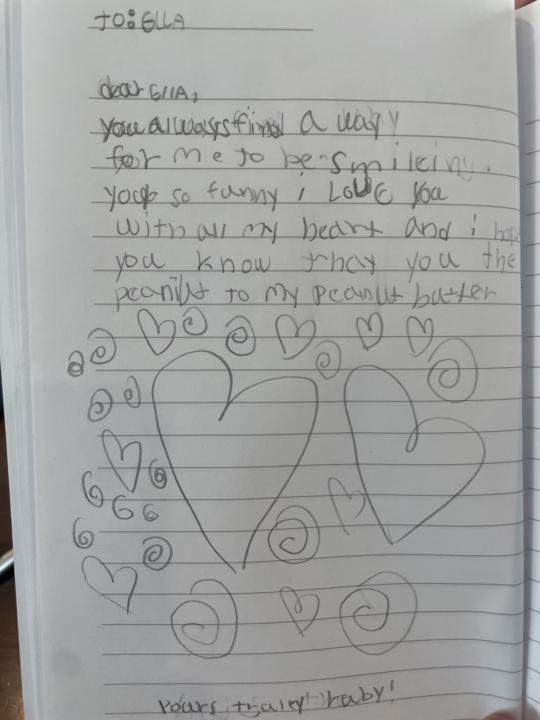 to: Ella
dear Ella,
you always find a way
for me to be smileing.
your so funny i Love you
with all my heart and i hop
you know thay you the
peanut to my peanut butter
yours